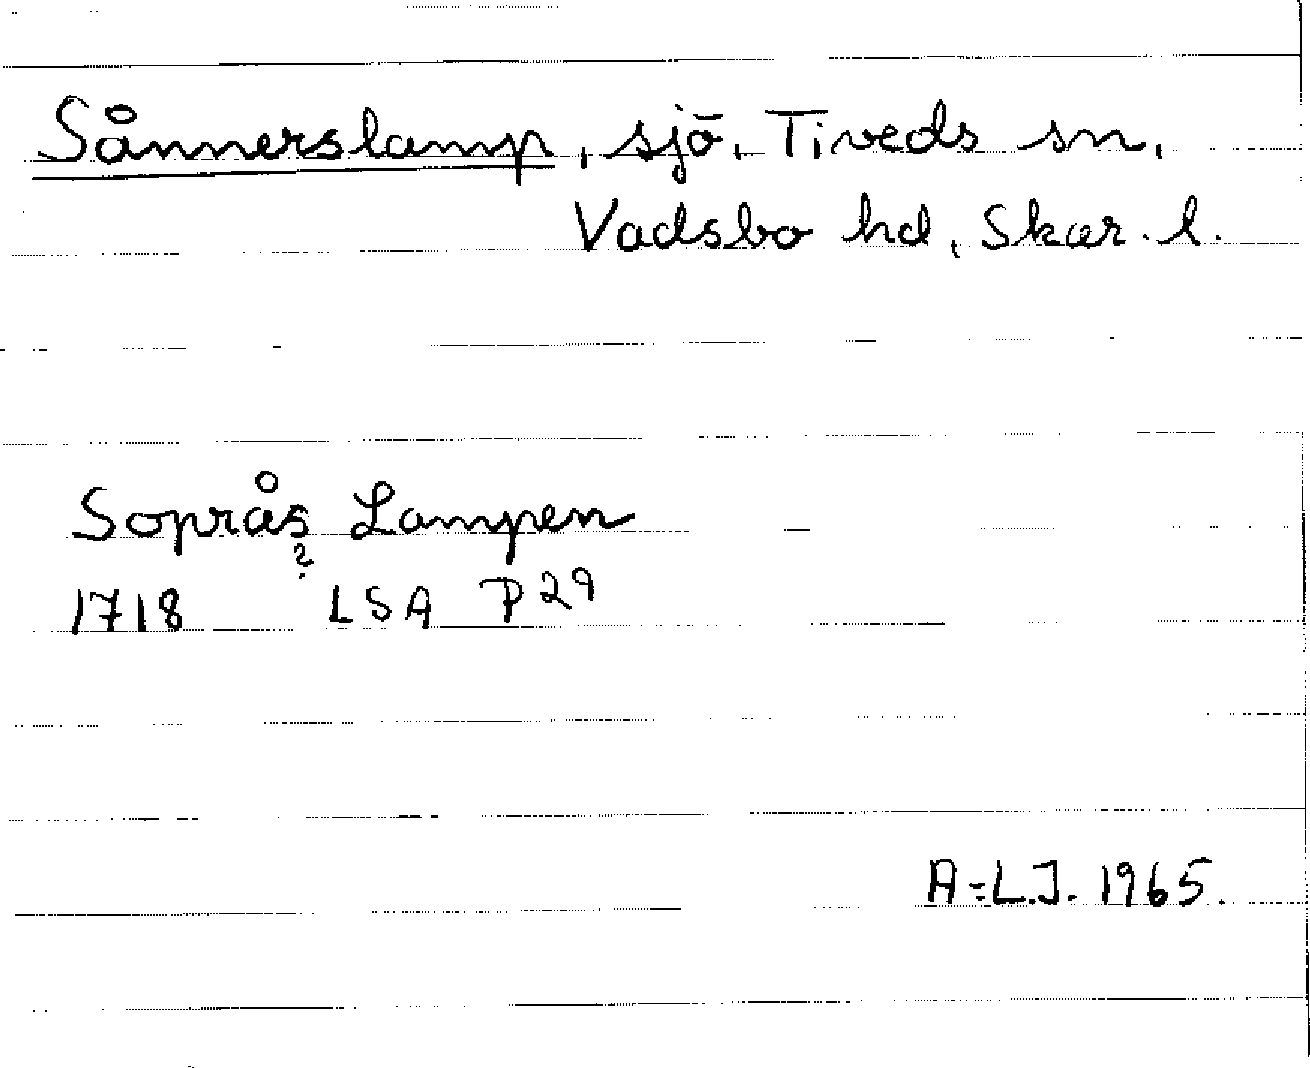 Sånnerslamp, sjö, Tiveds sn,
Vadsbo hd, Skar. l.
Soprås Lampen
?
1718 LSA P29
A-L.J. 1965.